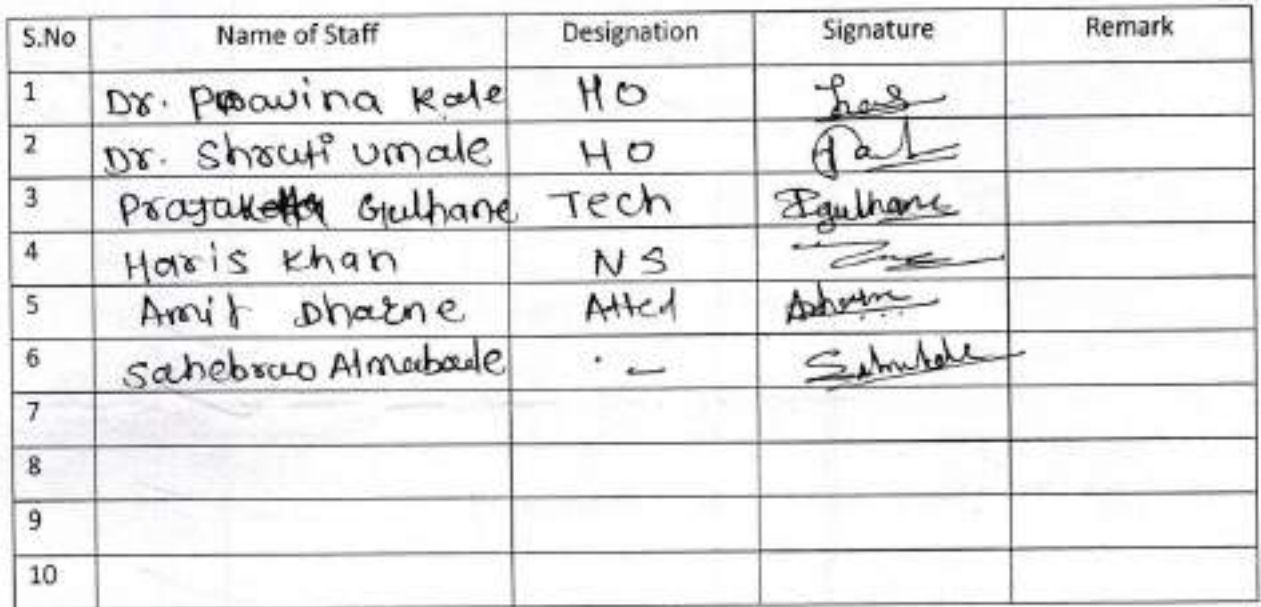 S.No Name of Staff Designation Signature Remark
1 Dr. Pravina Kale HO
2 Dr. Shruti Umale HO
3 Gulhane Tech Pgulhane
4 Haris Khan NS
5 Amit Dharne Atted
6 Sahebrao Almabade
7
8
9
10